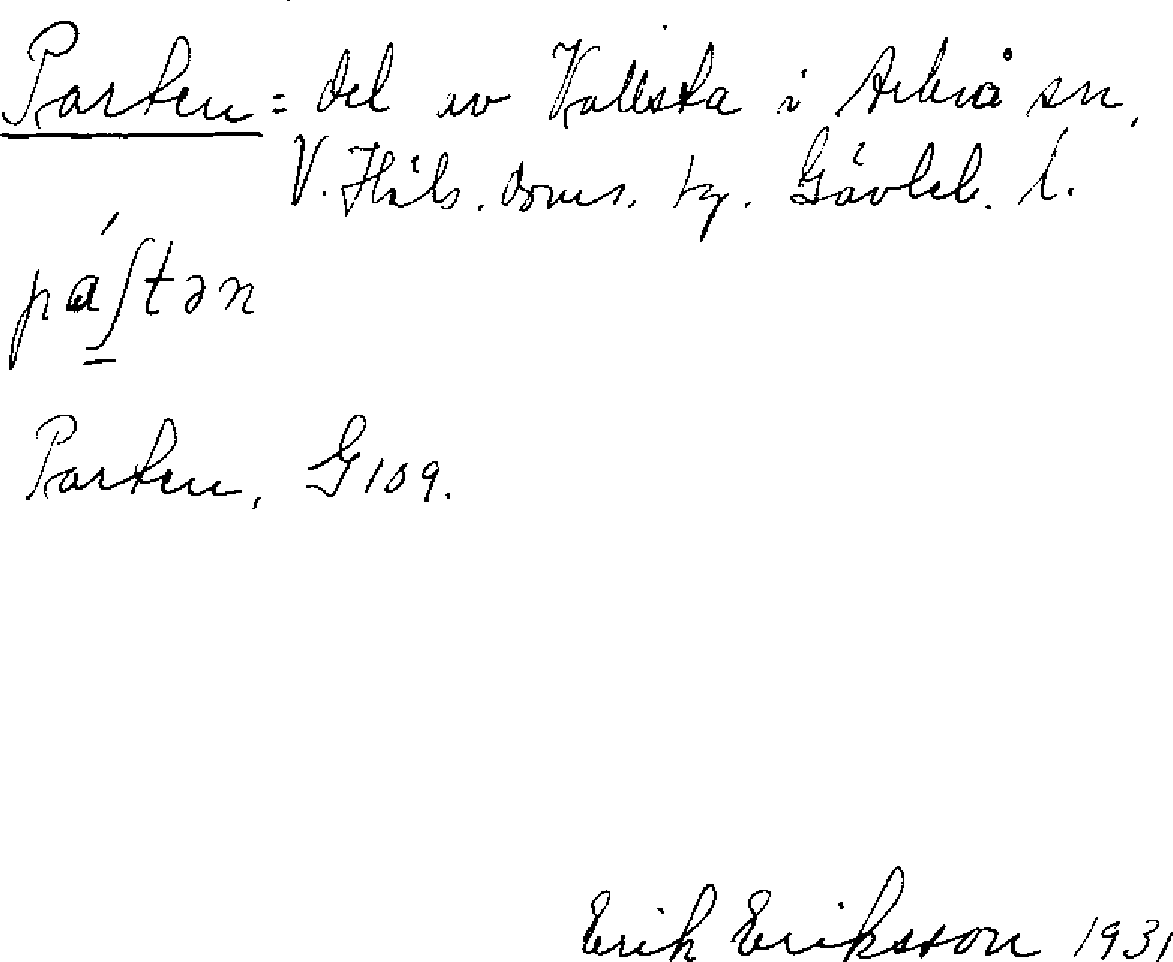 Parten = del av Vallsta i Arbrå sn,
V. Häls. doms. tg. Gävleb. l.
páʃtən
Parten, G109.
Erik Eriksson 1931